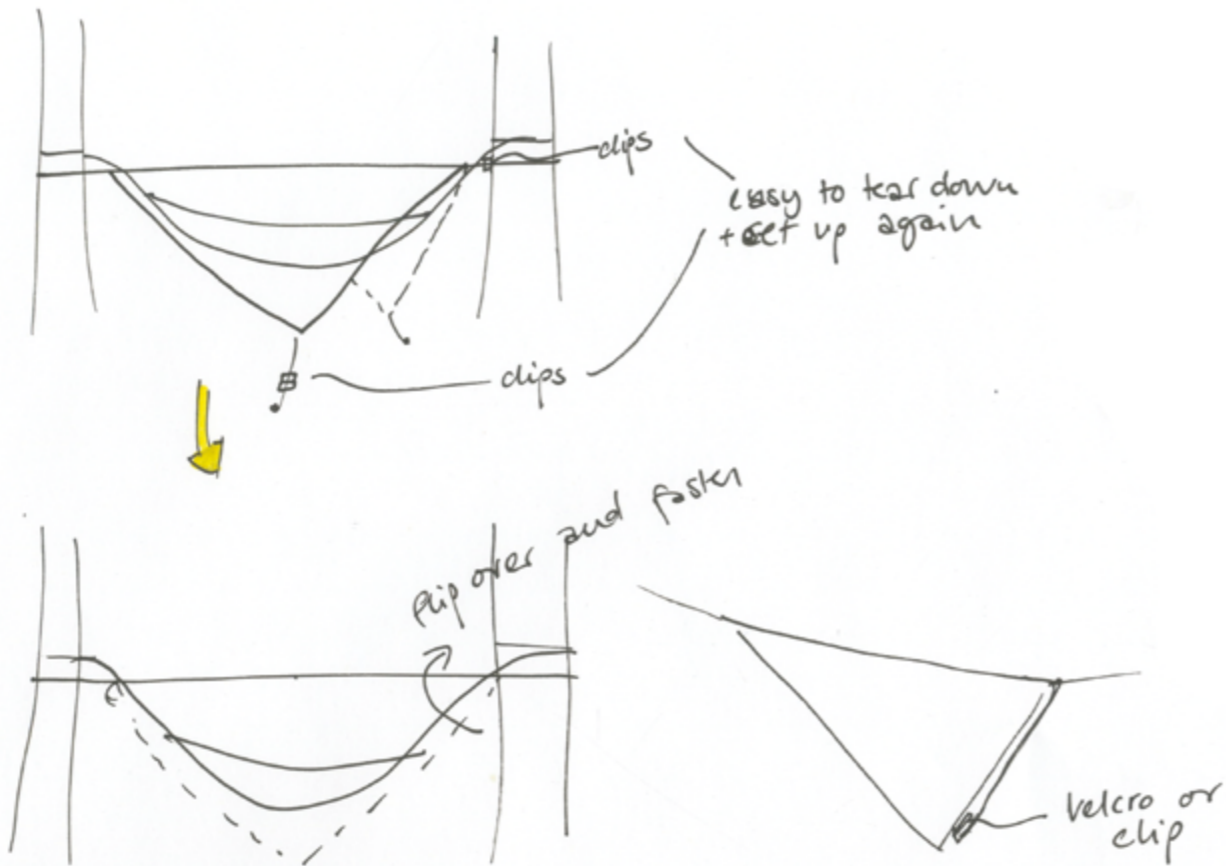 clips
easy to tear down
+ set up again
clips
flip over and fasten
velcro or
clip